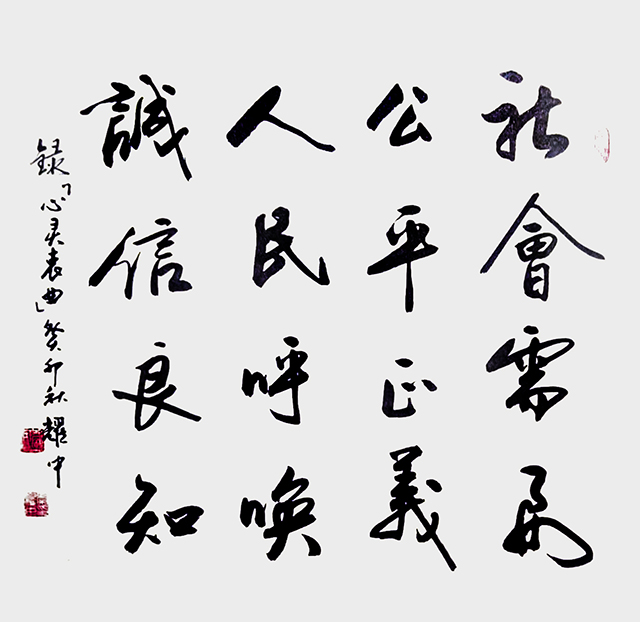 社會需要
公平正義
人民呼喚
誠信良知
錄「心灵衷曲」癸卯秋 耀中